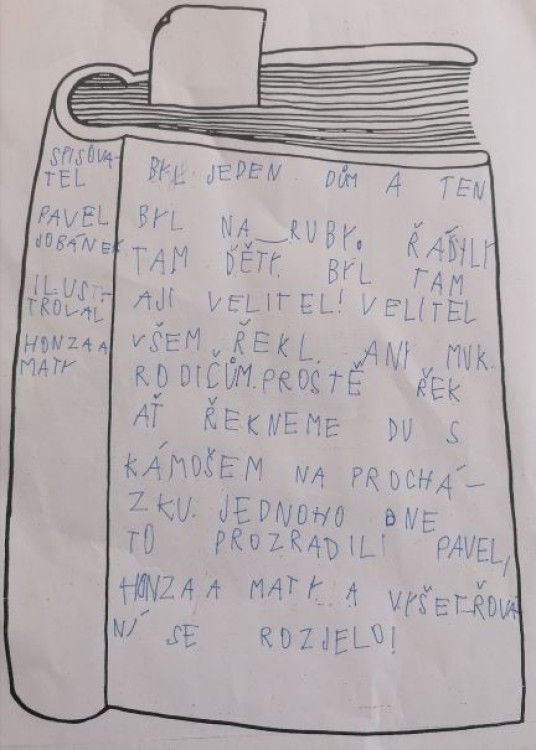 SPISOVA-
TEL
PAVEL
JOBÁNEK
ILUS-
TROVAL
HONZA A
MATY
BYL JEDEN DŮM A TEN
BYL NA RUBY. ŘÁDILY
TAM DĚTY. BYL TAM
AJI VELITEL! VELITEL
VŠEM ŘEKL. ANY MUK.
RODIČŮM. PROSTĚ ŘEK
AŤ ŘEKNEME DU S
KÁMOŠEM NA PROCHÁ-
ZKU. JEDNOHO DNE
TO PROZRADILI PAVEL,
HONZA A MATY. A VYŠETŘOVÁ
NÍ SE ROZJELO!